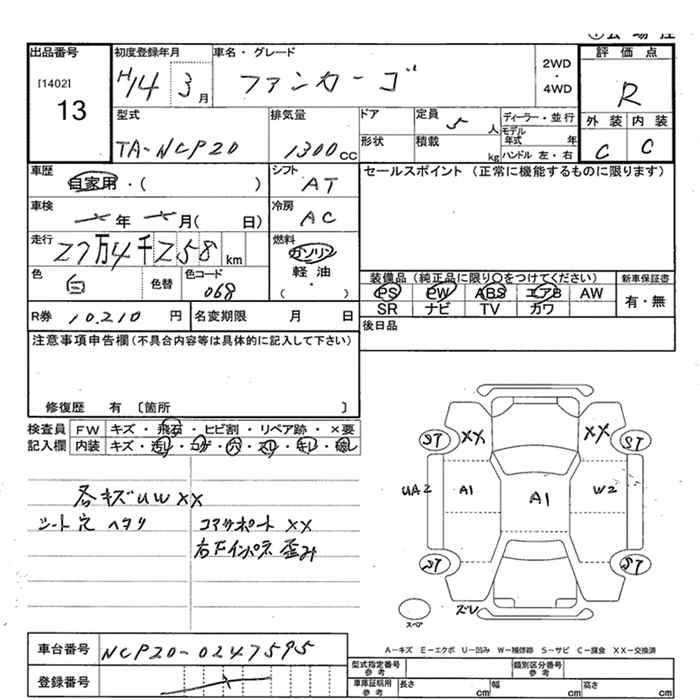 出品番号
[1402]
13
初度登録年月
H14 3月
車名・グレード
ファンカーゴ
2WD
・
4WD
評価点
R
外装 内装
C C
型式
TA-NCP20
排気量
1300cc
ドア
形状
定員
5人
積載
kg
ディーラー・並行
モデル年式 年
ハンドル 左・右
車歴
自家用・( )
シフト
AT
車検
年 月( 日)
冷房
AC
走行
27万4千258km
燃料
ガソリン
軽油
・
( )
色
白
色替
色コード
068
セールスポイント (正常に機能するものに限ります)
装備品 (純正品に限り〇をつけてください)
PS PW ABS エアB AW
SR ナビ TV カワ
新車保証書
有・無
R券 10,210円
名変期限 月 日
後日品
注意事項申告欄 (不具合内容等は具体的に記入して下さい)
修復歴 有 〔箇所 〕
検査員
記入欄
FW キズ・飛石・ヒビ割・リペア跡・×要
内装 キズ・汚レ・コゲ・穴・スレ・キレ・無し
各キズUWXX
シート穴 ヘタリ
コアサポート XX
右Fインパネ 歪み
ST XX XX ST
UA2 A1 A1 W2
ST ST
スペア
ズレ
A-キズ E-エクボ U-凹み W-補修跡 S-サビ C-腐食 XX-交換済
車台番号 NCP20-0247595
登録番号
型式指定番号
参考
類別区分番号
参考
車庫証明用
参考
長さ cm 幅 cm 高さ cm